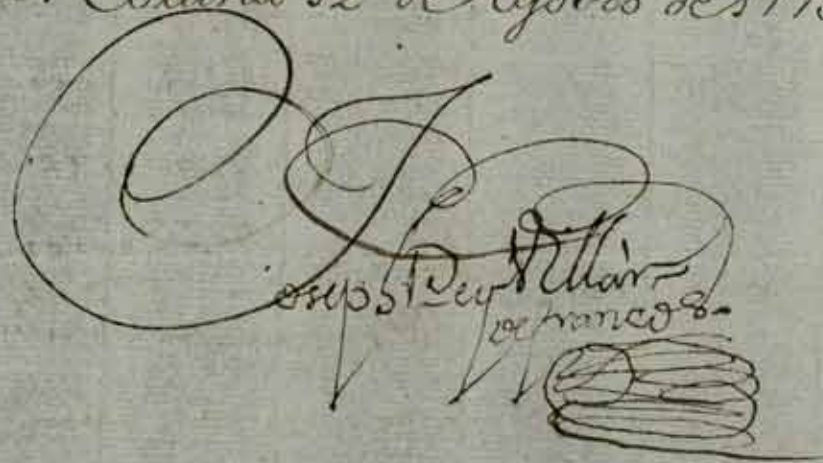 Coruña 12 de Agosto de 17
Joseph Rey Villar-
defrancos-